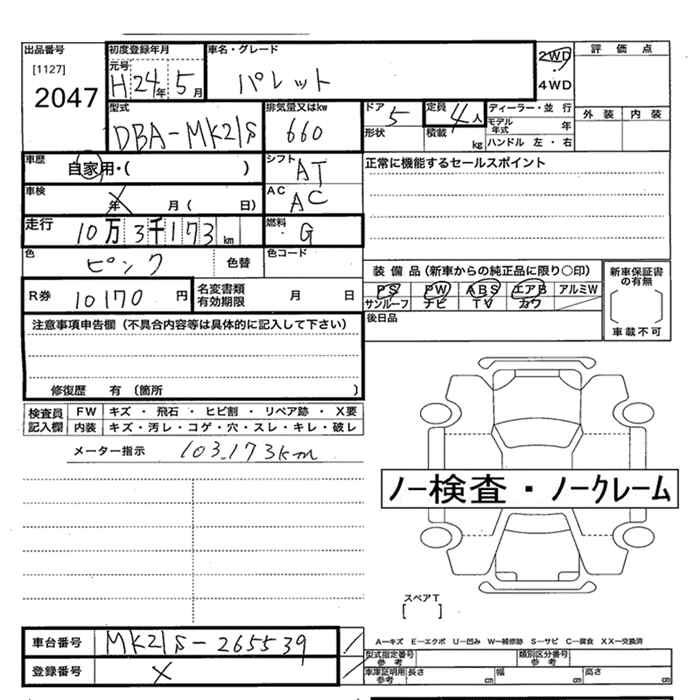 出品番号
[1127]
2047
初度登録年月
元号
H24年5月
車名・グレード
パレット
2WD
4WD
評価点
外装 内装
型式
DBA-MK21S
排気量又はkw
660
ドア 5
形状
定員 4人
積載 kg
ディーラー・並行
モデル年式 年
ハンドル 左・右
車歴 自家用・( )
シフト AT
正常に機能するセールスポイント
車検 X 年 月 ( 日)
AC AC
走行 10万3千173km
燃料 G
色 ピンク 色替
色コード
R券 10170円
名変書類有効期限 月 日
装備品(新車からの純正品に限り○印)
PS PW ABS エアB アルミW
サンルーフ ナビ TV カワ
新車保証書の有無
( )
車載不可
後日品
注意事項申告欄(不具合内容等は具体的に記入して下さい)
修復歴 有 (箇所 )
検査員記入欄
FW キズ・飛石・ヒビ割・リペア跡・X要
内装 キズ・汚レ・コゲ・穴・スレ・キレ・破レ
メーター指示 103,173km
ノー検査・ノークレーム
スペアT
[ ]
車台番号 MK21S-265539
登録番号 X
A－キズ E－エクボ U－凹み W－補修跡 S－サビ C－腐食 XX－交換済
型式指定番号 参考
類別区分番号 参考
車庫証明用 参考 長さ cm 幅 cm 高さ cm